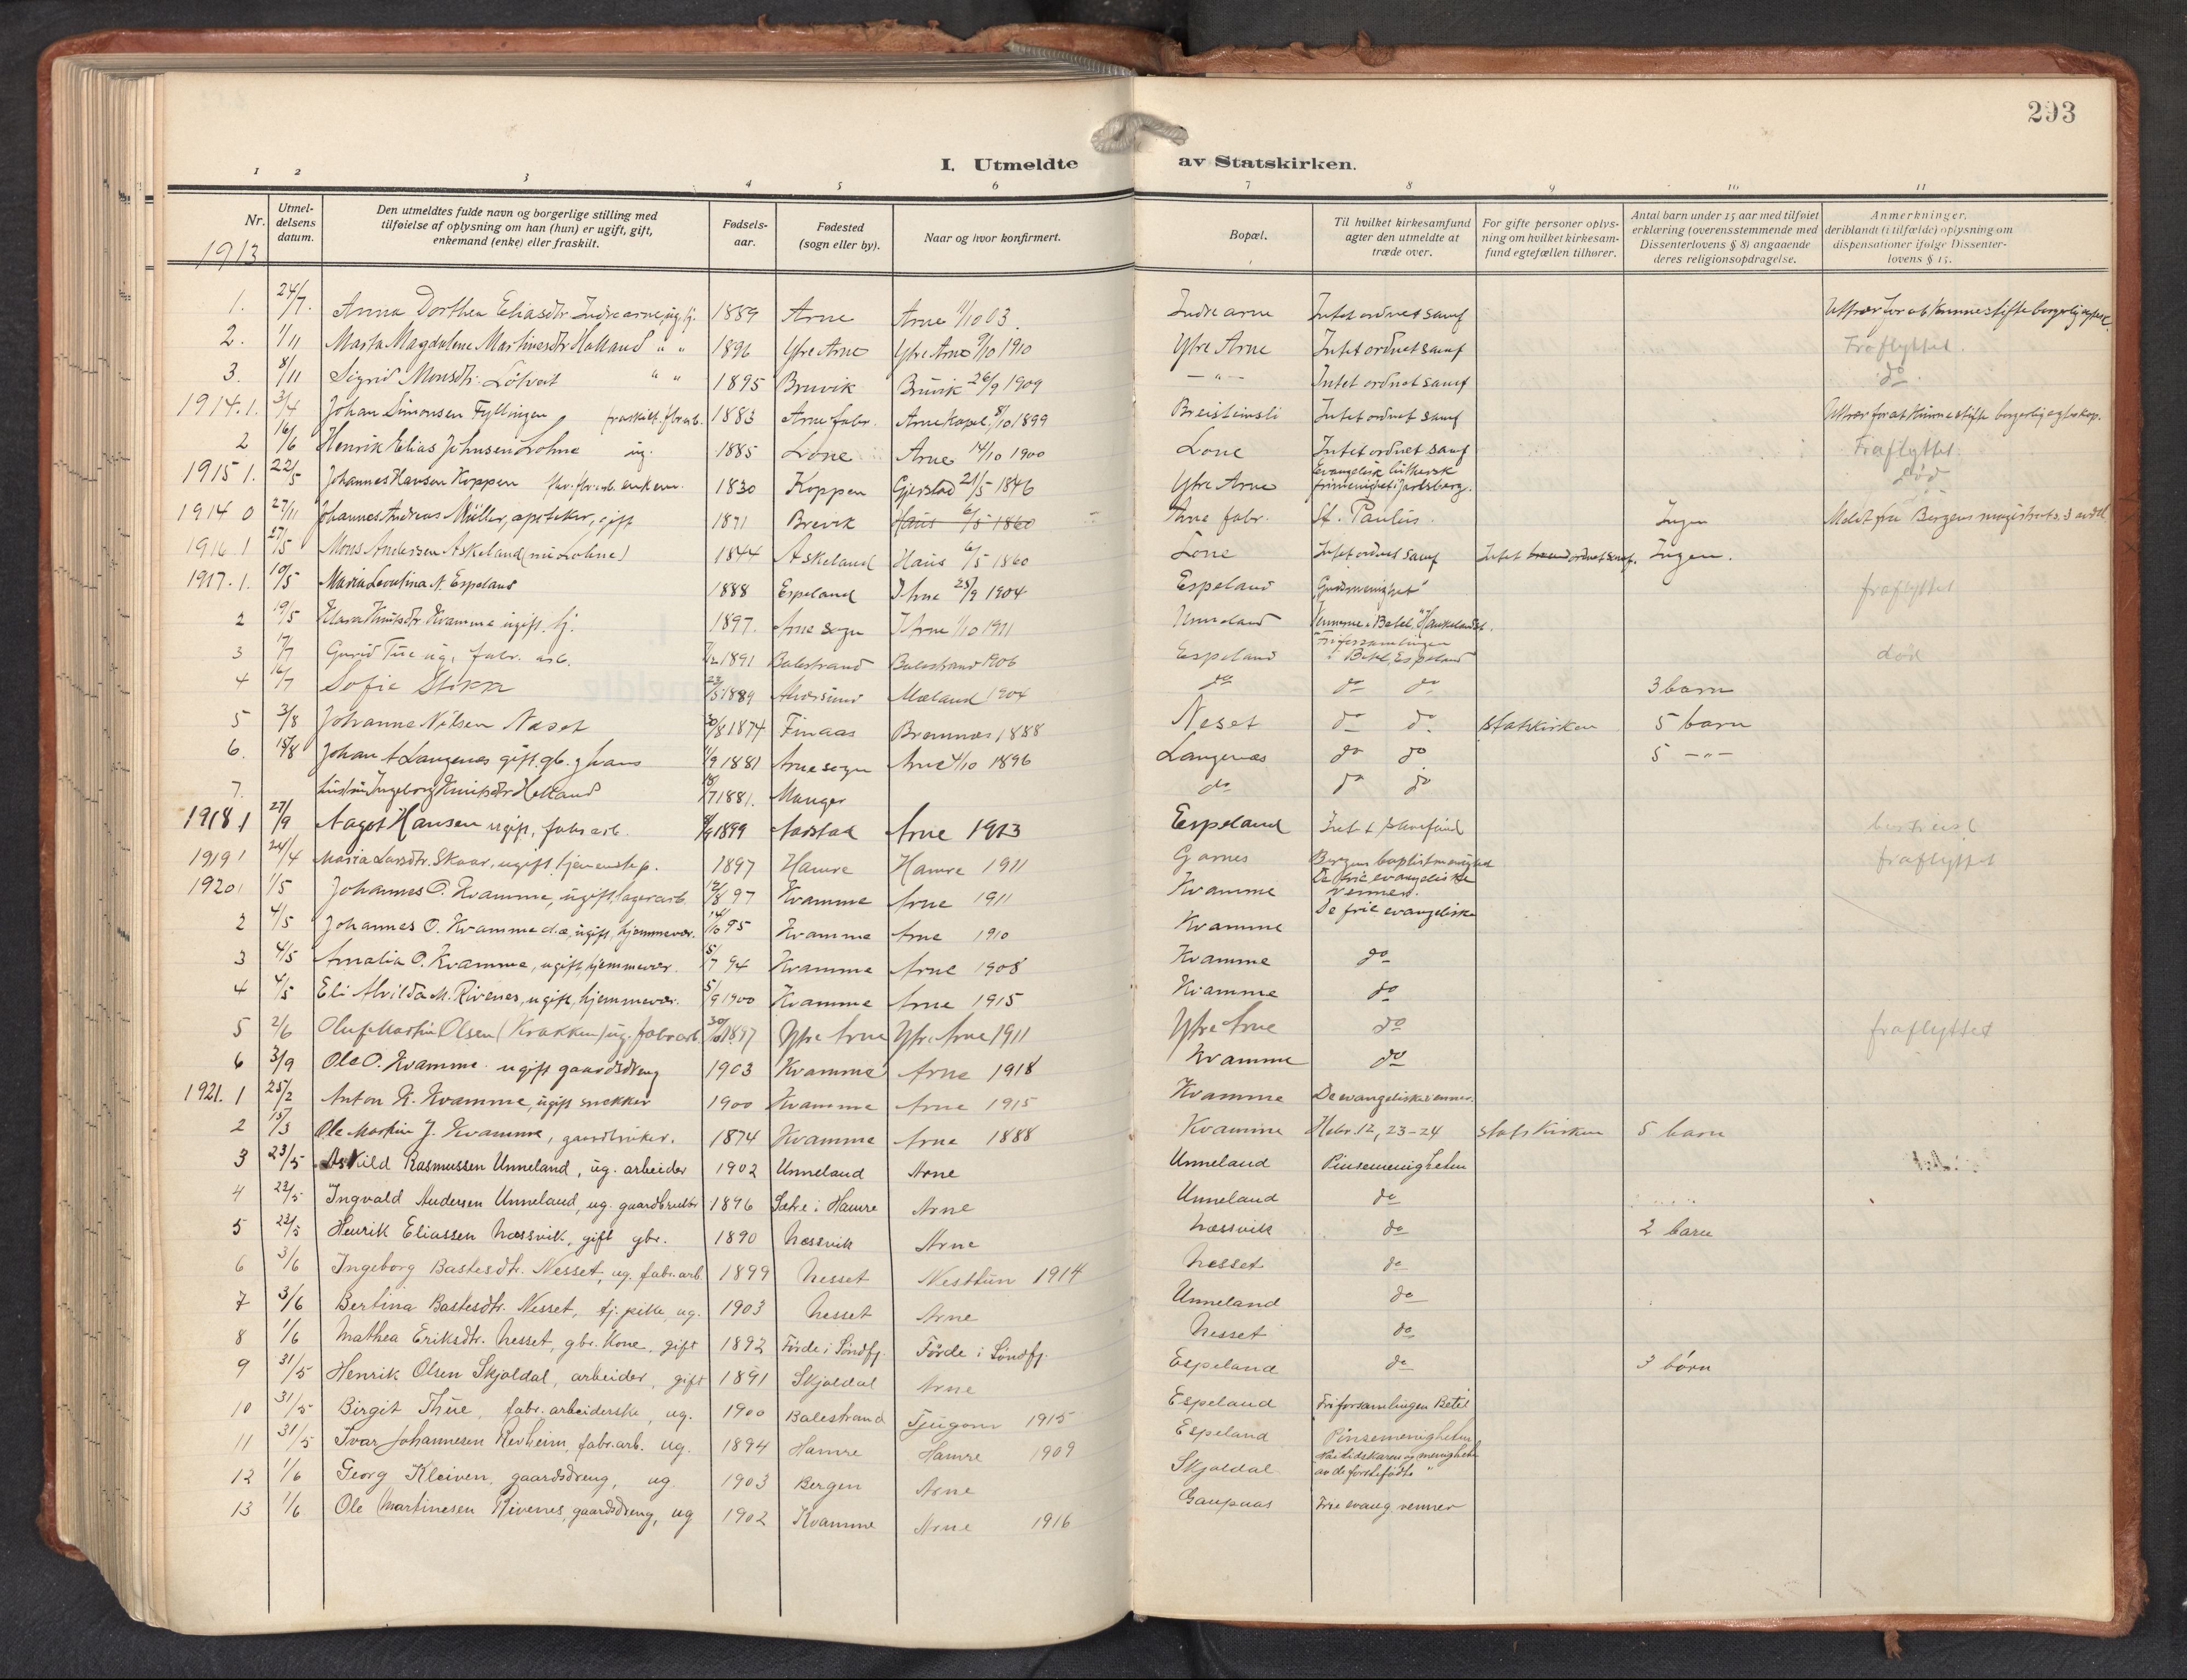 293
I. Utmeldte av Statskirken.
1 2 3 4 5 6 7 8 9 10 11
Nr. 1913
Utmeldelsens datum.
Den utmeldtes fulde navn og borgerlige stilling med tilføielse af oplysning om han (hun) er ugift, gift, enkemand (enke) eller fraskilt.
Fødselsaar.
Fødested (sogn eller by).
Naar og hvor konfirmert.
Bopæl.
Til hvilket kirkesamfund agter den utmeldte at træde over.
For gifte personer oplysning om hvilket kirkesamfund egtefællen tilhører.
Antal barn under 15 aar med tilføiet erklæring (overensstemmende med Dissenterlovens § 8) angaaende deres religionsopdragelse.
Anmerkninger, deriblandt (i tilfælde) oplysning om dispensationer ifølge Dissenterlovens § 15.
1. 24/7. Anna Dorthea Eliasdtr. Indrearne, ug. tj. 1889 Arne Arne 11/10 03. Indre arne Intet ordnet samf
2. 1/11 Marta Magdalene Martinesdtr. Halland " " 1896 Ytre Arne Ytre Arne 9/10 1910 Ytre Arne Intet ordnet samf Fraflyttet.
3. 8/11 Sigrid Monsdtr. Lötveit " " 1895 Bruvik Bruvik 26/9 1909 — " — Intet ordnet samf do.
1914. 1. 3/4 Johan Simonsen Fyllingen fraskilt. fbrarb. 1883 Arne fabr. Arne kapel, 8/10 1899 Breisteinsli Intet ordnet samf
2 16/6 Henrik Elias Johnsen Lohne ug. 1885 Lone Arne 14/10 1900 Lone Intet ordnet samf Fraflyttet.
1915 1. 22/5 Johannes Hansen Koppen enkem. 1830 Koppen Gjerstad 21/5 1846 Ytre Arne Evangelisk luthersk frimenighet i Jarlsberg. Død
1914 0 27/11 Johannes Andreas Müller, apoteker, gift 1871 Brevik Haus 6/5 1860 Arne fabr. St. Paulus. Ingen Meldt fra Bergens magistrats 3 avdel
1916 1 27/5 Mons Andersen Askeland (Lohne) 1844 Askeland Haus 6/5 1860 Lone Intet ordnet samf Intet ordnet samf. Ingen.
1917. 1. 10/5 Maria Leontina N. Espeland 1888 Espeland Arne 25/9 1904 Espeland "Gudsmenighet" fraflyttet
2 19/5 Klara Knutsdtr. Kvamme ugift. tj. 1897. Arne sogn Arne 1/10 1911 Unneland
3 17/7 Gurid Tue ug, fabr. arb. 1891 Balestrand Balestrand 1906 Espeland Friforsamlingen i Betel, Espeland død
4 16/7 Sofie Stokke 1889 Alversund Mæland 1904 do do do 3 barn
5 3/8 Johanne Nilsen Neset 30/8 1874 Finaas Bremnes 1888 Neset do do statskirken 5 barn
6. 15/8 Johan A Langenes gift. gb. 11/9 1881 Arne sogn Arne 4/10 1896 Langenæs do do 5 — " —
7. Ingeborg Knutsdtr Helland 1881. Manger do do do
1918 1 27/9 Aagot Hansen ugift, fabr arb. 1899 Aarstad Arne 1913 Espeland
1919 1 24/4 Maria Larsdtr. Skaar, ugift, tjenestep. 1897 Hamre Hamre 1911 Garnes Bergens baptistmenighed fraflyttet
1920 1 1/5 Johannes O. Kvamme, ugift, lagerarb. 12/8 97 Kvamme Arne 1911 Kvamme De frie evangeliske venner.
2 4/5 Johannes O. Kvamme d.æ, ugift, hjemmevær. 14/10 95 Kvamme Arne 1910 Kvamme De frie evangeliske
3 4/5 Amalia O. Kvamme, ugift, hjemmevær. 5/7 94 Kvamme Arne 1908 Kvamme do
4 4/5 Eli Alvilda M. Rivenes, ugift, hjemmevær. 5/9 1900 Kvamme Arne 1915 Kvamme do
5 2/6 Oluf Martin Olsen (Krakken) ug. fabrarb. 30/10 1897 Ytre Arne Ytre Arne 1911 Ytre Arne do fraflyttet
6 3/9 Ole O. Kvamme ugift gaardsdreng 1903 Kvamme Arne 1918 Kvamme do
1921. 1 25/2 Anton K. Kvamme, ugift snekker 1900 Kvamme Arne 1915 Kvamme De evangeliske venner.
2 15/3 Ole Martin J. Kvamme, gaardbruker. 1874 Kvamme Arne 1888 Kvamme Hebr. 12, 23-24 statskirken 5 barn
3 23/5 Askild Rasmussen Unneland, ug. arbeider 1902 Unneland Arne Unneland Pinsemenigheten
4 22/5 Ingvald Andersen Unneland, ug. gaardbruker 1896 Sætre i Hamre Arne Unneland do
5 22/5 Henrik Eliassen Næssvik, gift gbr. 1890 Næssvik Arne Næssvik do 2 barn
6 3/6 Ingeborg Bastesdtr. Nesset, ug. fabr. arb. 1899 Nesset Nesttun 1914 Nesset do
7 3/6 Bertina Bastesdtr. Nesset, tj. pike, ug. 1903 Nesset Arne Unneland do
8 1/6 Mathea Eriksdtr. Nesset, gbr. Kone, gift 1892 Förde i Söndfj. Förde i Söndfj. Nesset do
9 31/5 Henrik Olsen Skjoldal, arbeider, gift 1891 Skjoldal Arne Espeland do 3 børn
10 31/5 Birgit Thue, fabr. arbeiderske, ug. 1900 Balestrand Tjugom 1915 Espeland Friforsamlingen Betel
11 31/5 Ivar Johannesen Revheim, fabr. arb. ug. 1894 Hamre Hamre 1909 Espeland Pinsemenigheten
12 1/6 Georg Kleiven, gaardsdreng, ug. 1903 Bergen Arne Skjoldal av de førstefødte "
13 1/6 Ole Martinesen Rivenes, gaardsdreng, ug 1902 Kvamme Arne 1916 Gaupaas Frie evang. venner